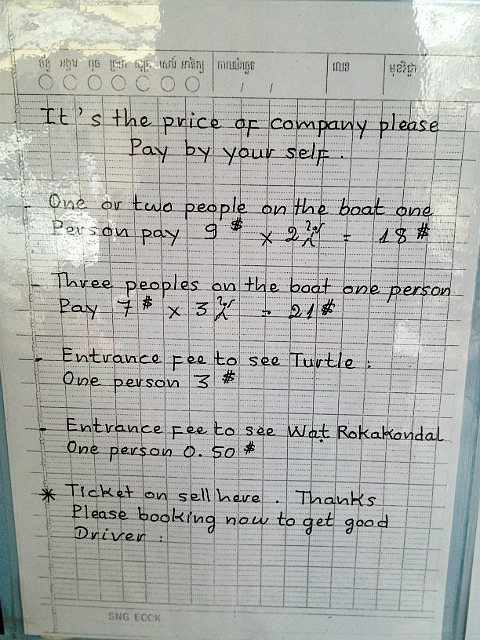 ច័ន្ទ អង្គារ ពុធ ព្រហ សុក្រ សៅរ៍ អាទិត្យ កាលបរិច្ឆេទ លេខ មុខវិជ្ជា
/ /
It's the price of company please
Pay by your self.
- One or two people on the boat one
Person pay 9 $ x 2 = 18 $
- Three peoples on the boat one person
Pay 7 $ x 3 = 21 $
- Entrance Fee to see Turtle :
One person 3 $
- Entrance Fee to see Wat Rokakandal
One person 0.50 $
* Ticket on sell here . Thanks
Please booking now to get good
Driver .
SNG EOCK